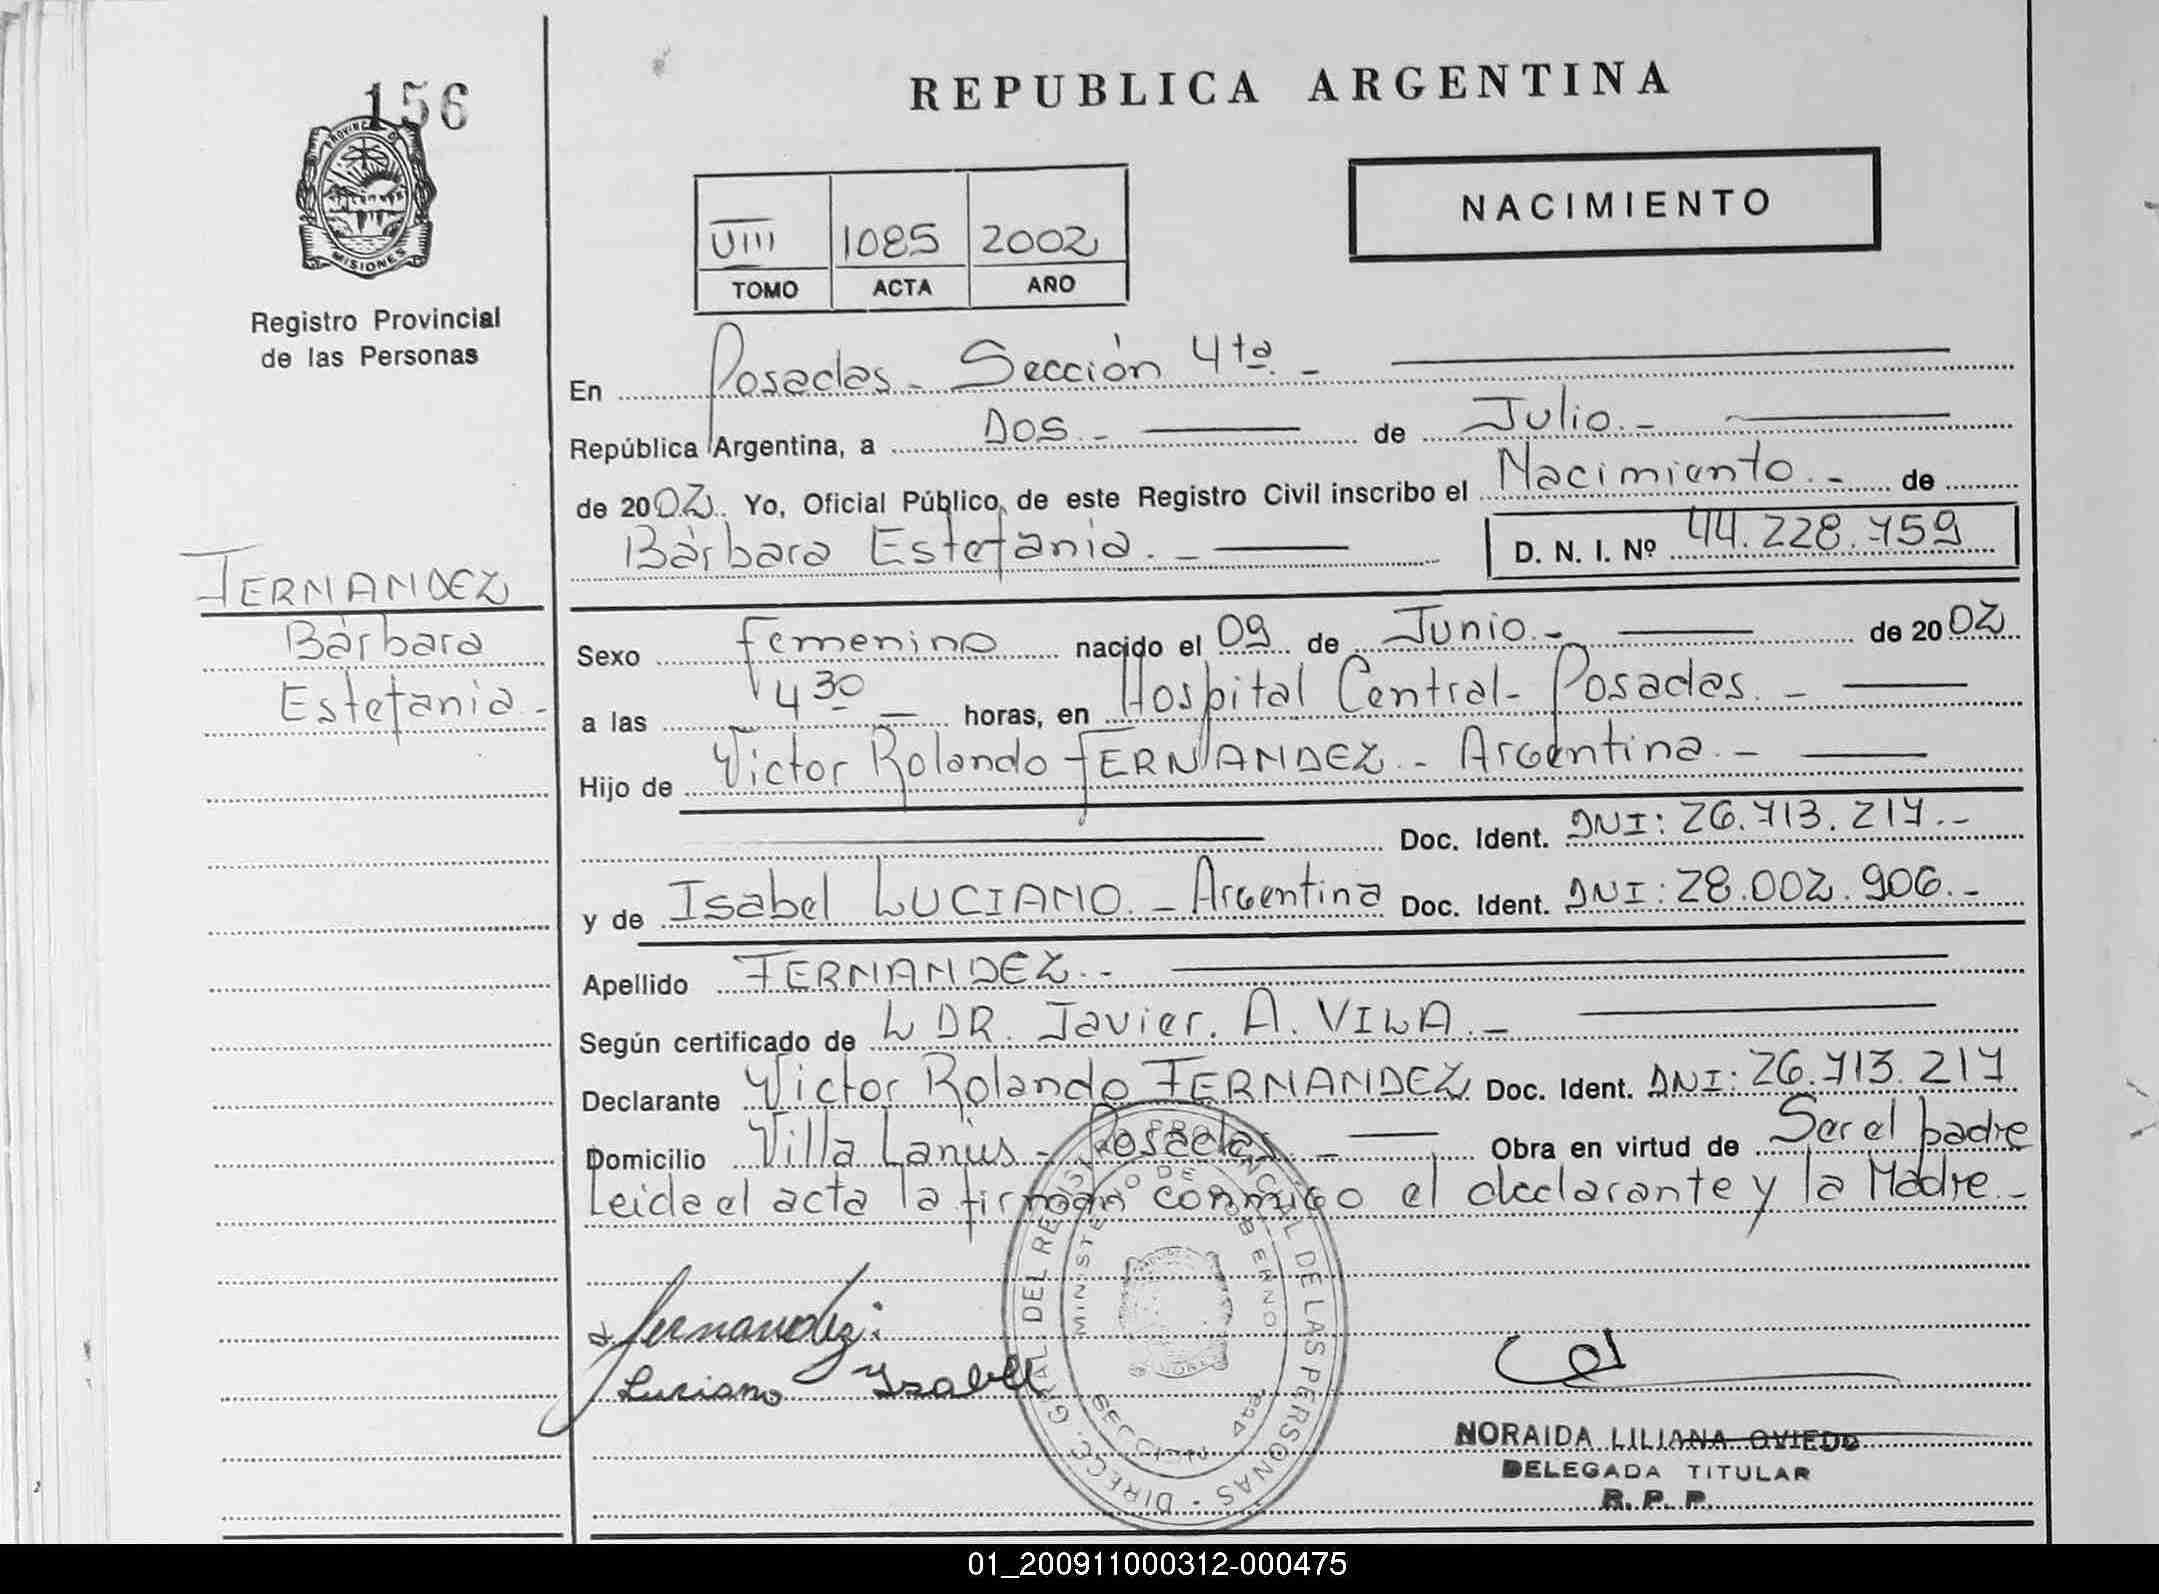 156
PROVINCIA DE
MISIONES
Registro Provincial
de las Personas
FERNANDEZ
Bárbara
Estefania.-
REPUBLICA ARGENTINA
NACIMIENTO
VIII 1085 2002
TOMO ACTA AÑO
En Posadas - Sección 4ta. -
República Argentina, a Dos.- de Julio.-
de 2002. Yo, Oficial Público, de este Registro Civil inscribo el Nacimiento.- de
Bárbara Estefania. - D. N. I. Nº 44.228.759
Sexo femenino nacido el 09 de Junio.- de 2002
a las 4 30 horas, en Hospital Central - Posadas. -
Hijo de Victor Rolando FERNANDEZ - Argentina. -
Doc. Ident. DNI: 26.713.217.-
y de Isabel LUCIANO. - Argentina Doc. Ident. DNI: 28.002.906.-
Apellido FERNANDEZ.-
Según certificado de L DR. Javier. A. VILA. -
Declarante Victor Rolando FERNANDEZ Doc. Ident. DNI: 26.713.217
Domicilio Villa Lanús - Posadas - Obra en virtud de Ser el padre
Leida el acta la firman conmigo el declarante y la Madre.-
Fernandez
Luciano Ysabel
DIRECC. GRAL DEL REGISTRO PROVINCIAL DE LAS PERSONAS
MINISTERIO DE GOBIERNO
SECCION 4ta
NORAIDA LILIANA OVIEDO
DELEGADA TITULAR
R. P. P.
01_200911000312-000475